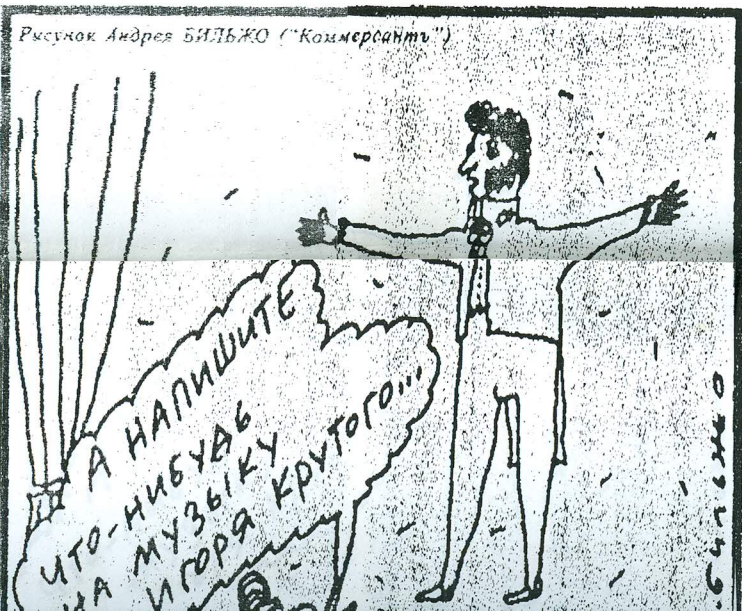 Рисунок Андрея БИЛЬЖО ("Коммерсантъ")
А НАПИШИТЕ
ЧТО-НИБУДЬ
НА МУЗЫКУ
ИГОРЯ КРУТОГО...
БИЛЬЖО